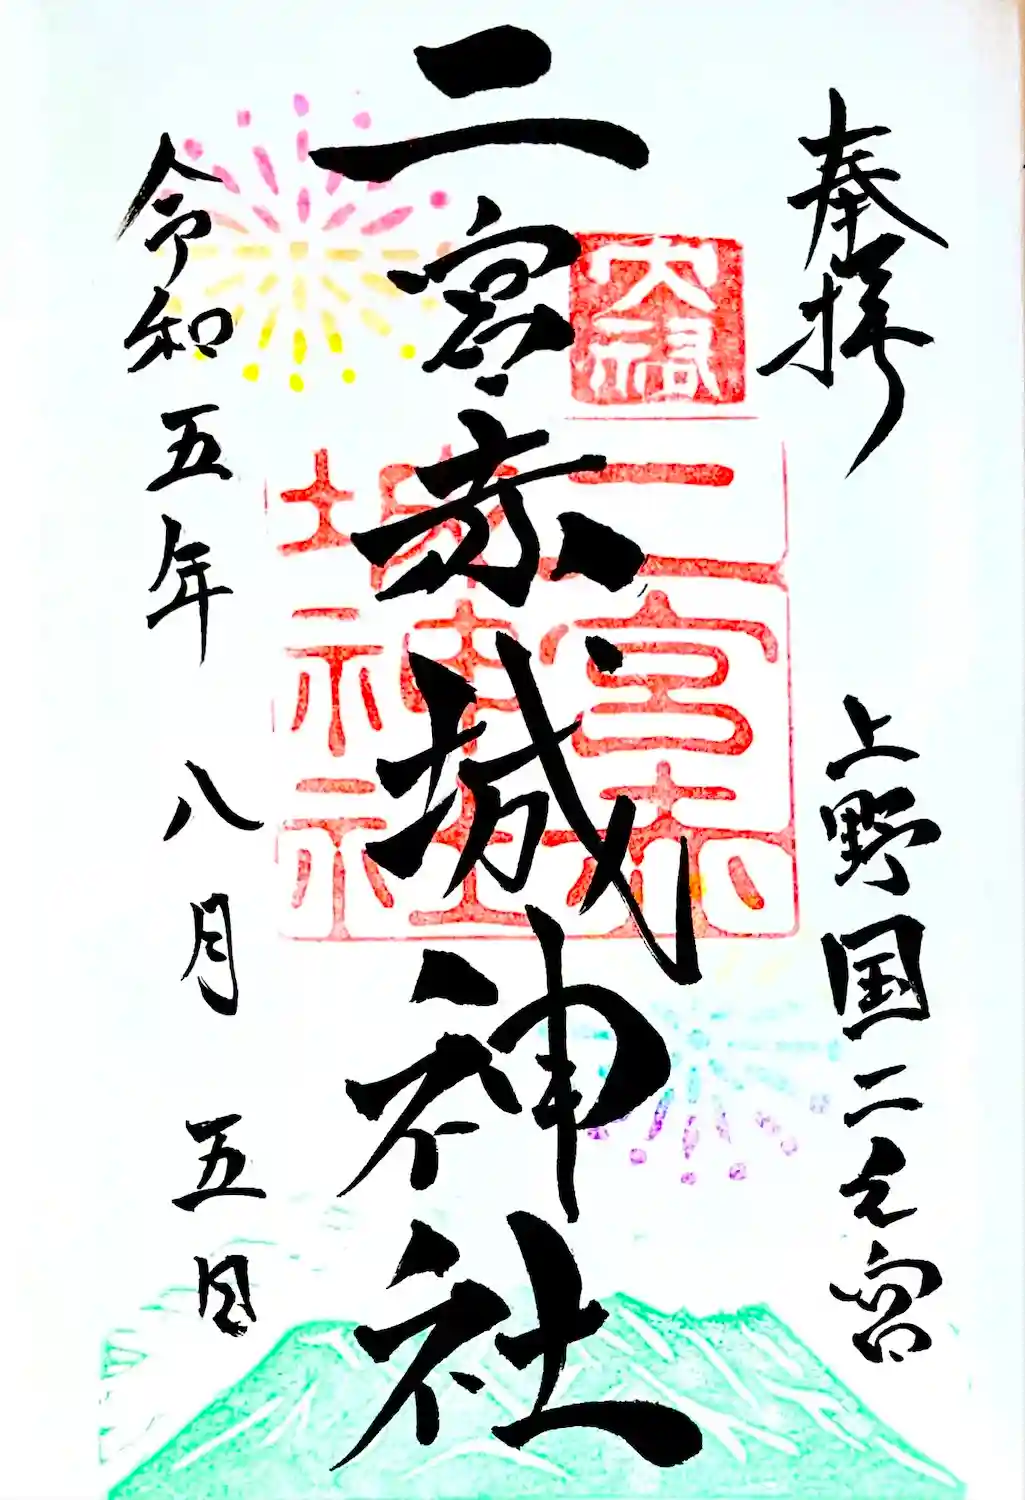 奉拝
上野国二之宮
大裕
二宮赤
城神社
二宮赤城神社
令和五年八月五日